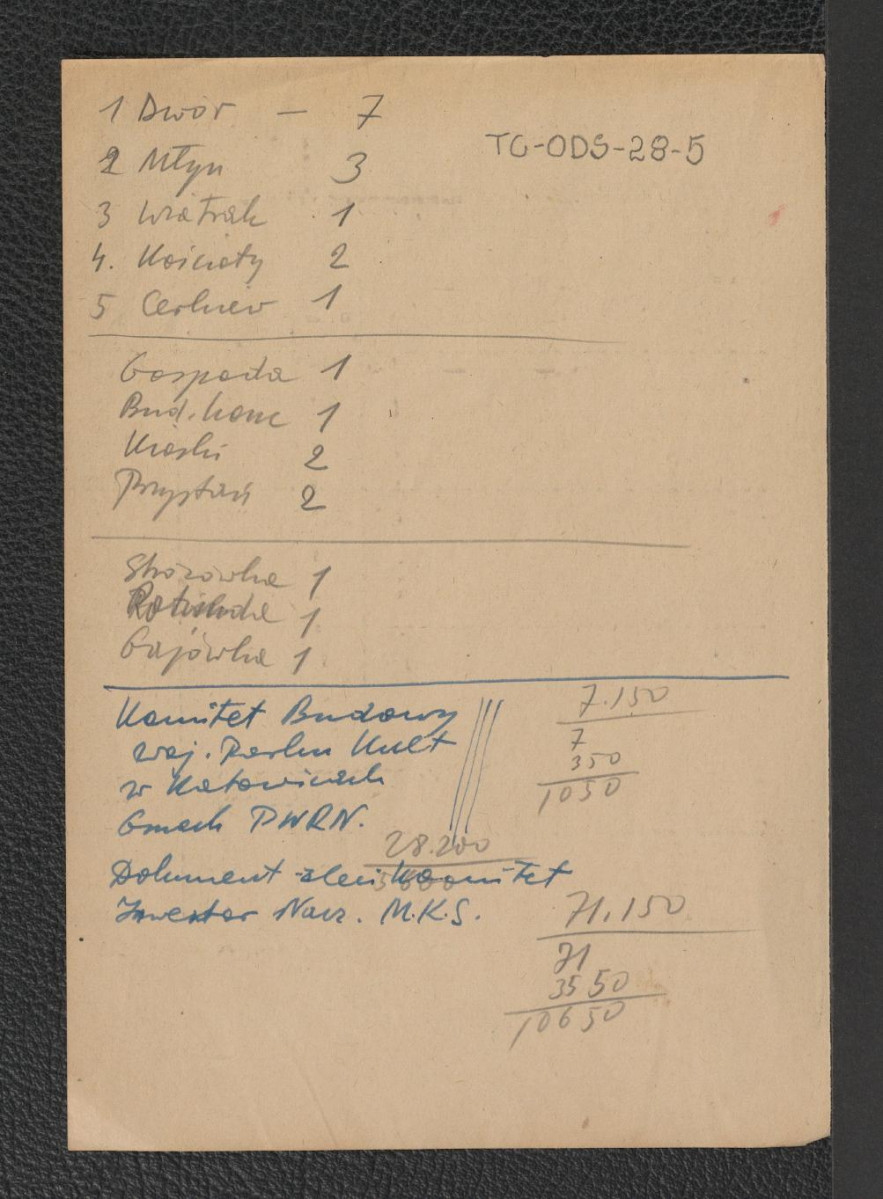 1 Dwór — 7
TC-ODS-28-5
2 Młyn 3
3 Wiatrak 1
4. Kościoły 2
5 Cerkiew 1
Gospoda 1
Bud. konc 1
Kioski 2
Przystań 2
Stróżówka 1
1
Gajówka 1
Komitet Budowy
Woj. Parku Kult
w Katowicach
Gmach PWRN.
7.150
7
350
1050
28.200
Dokument zleci Komitet
Inwestor Nacz. M.K.S.
71.150
71
3550
10650